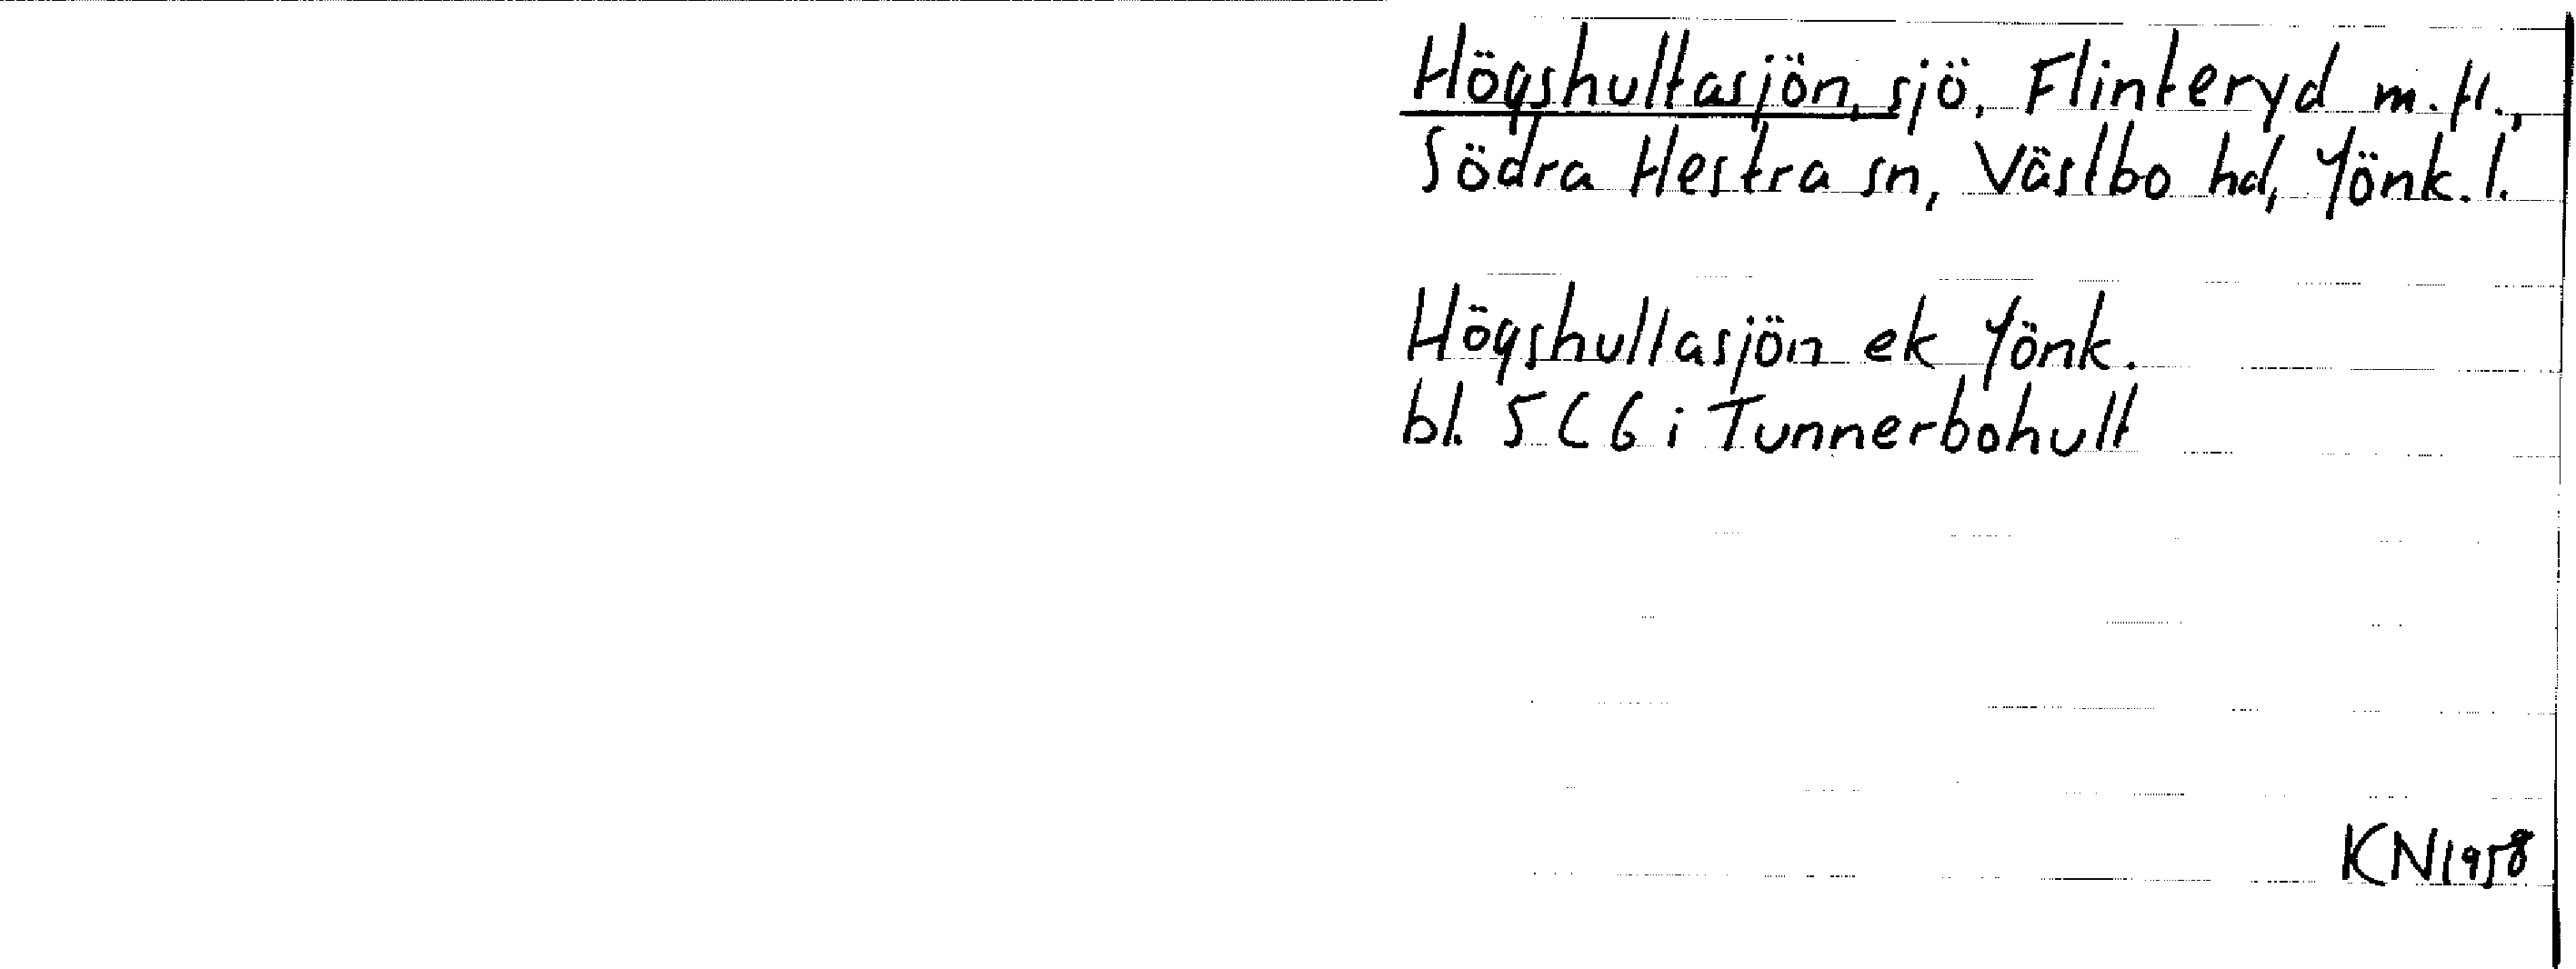 Högshultasjön, sjö, Flinteryd m.fl.,
Södra Hestra sn, Västbo hd, Jönk. l.
Högshultasjön ek Jönk.
bl. 5 C 6 i Tunnerbohult
KN 1958